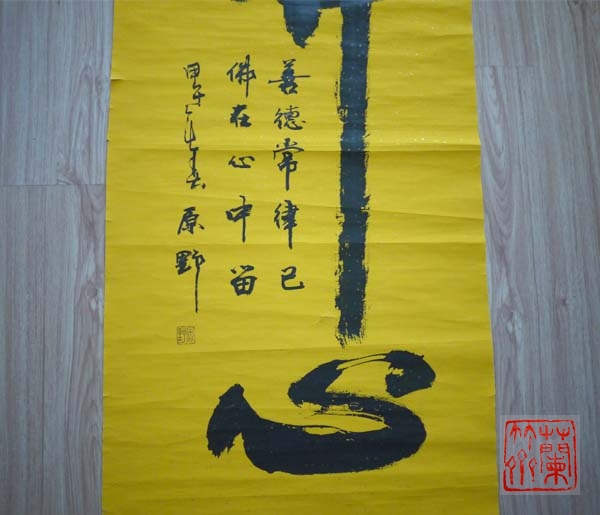 心
善德常律己
佛在心中留
甲午春 原野
蘭